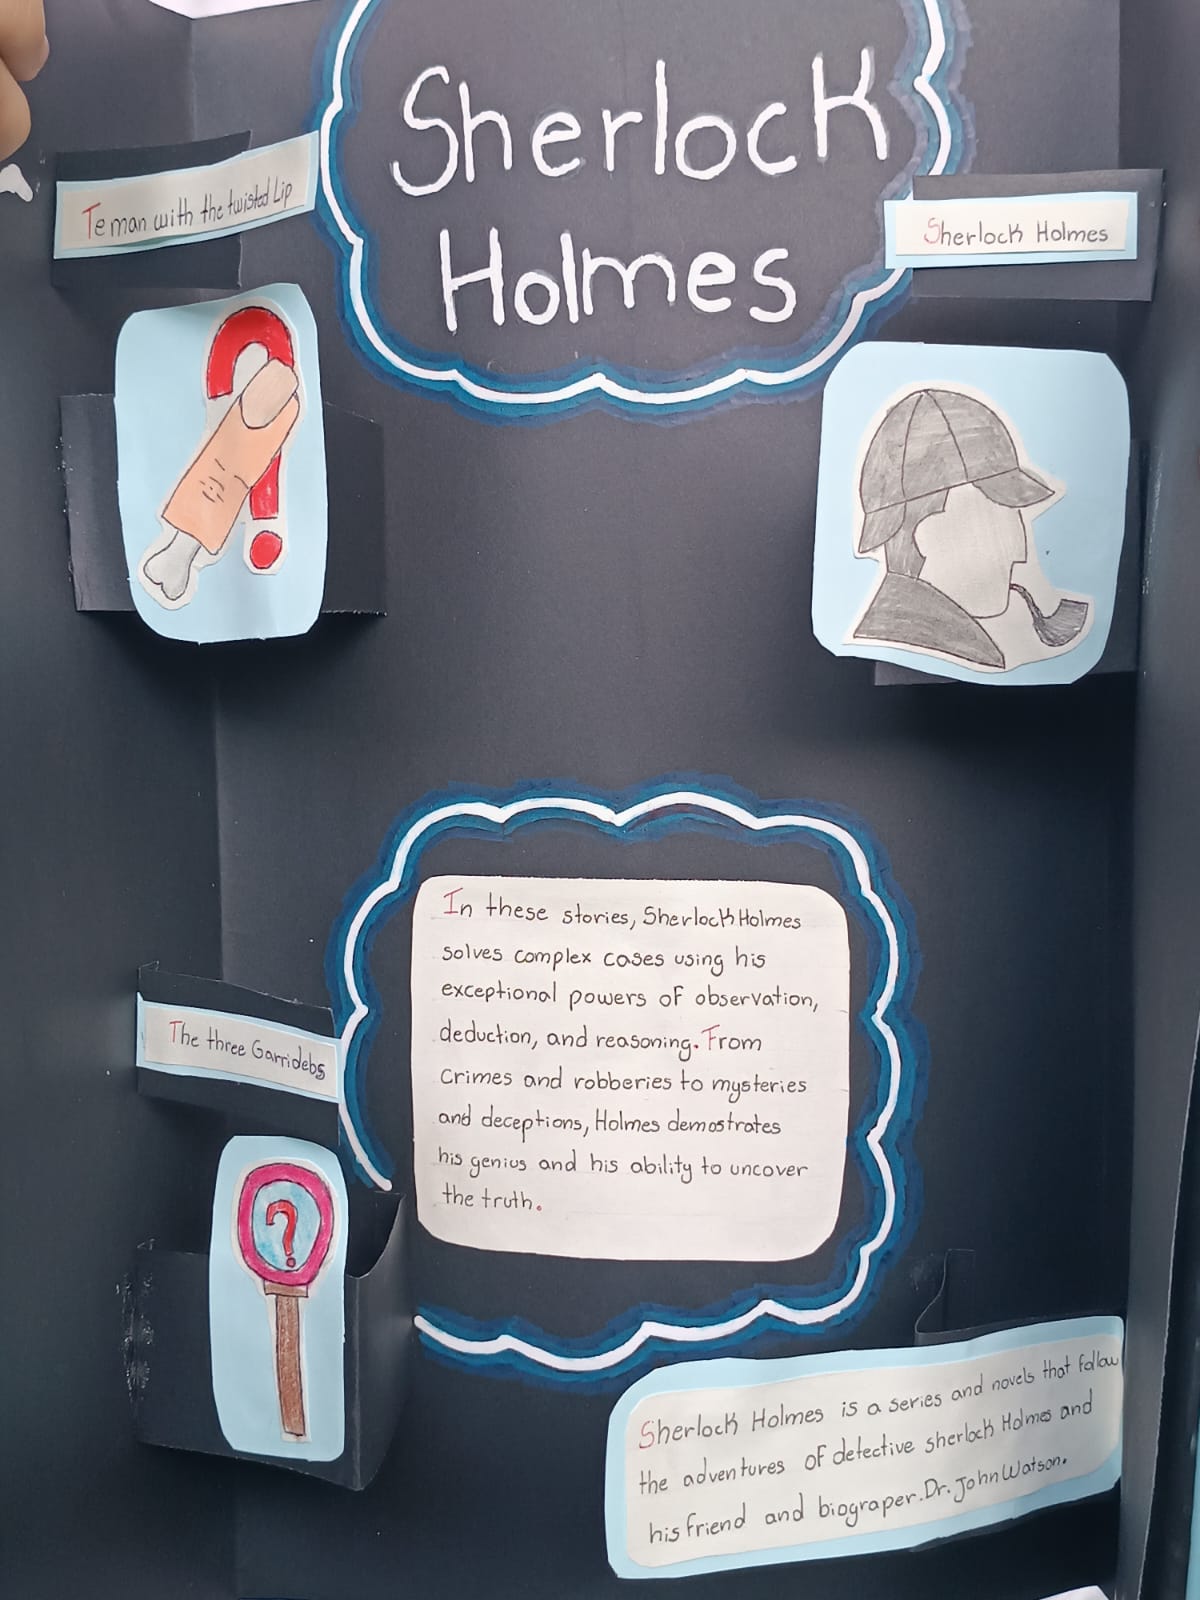 Sherlock
Holmes
Te man with the twisted Lip
Sherlock Holmes
In these stories, Sherlock Holmes
solves complex cases using his
exceptional powers of observation,
deduction, and reasoning. From
crimes and robberies to mysteries
and deceptions, Holmes demostrates
his genius and his ability to uncover
the truth.
The three Garridebs
?
Sherlock Holmes is a series and novels that follow
the adventures of detective sherlock Holmes and
his friend and biograper. Dr. John Watson.